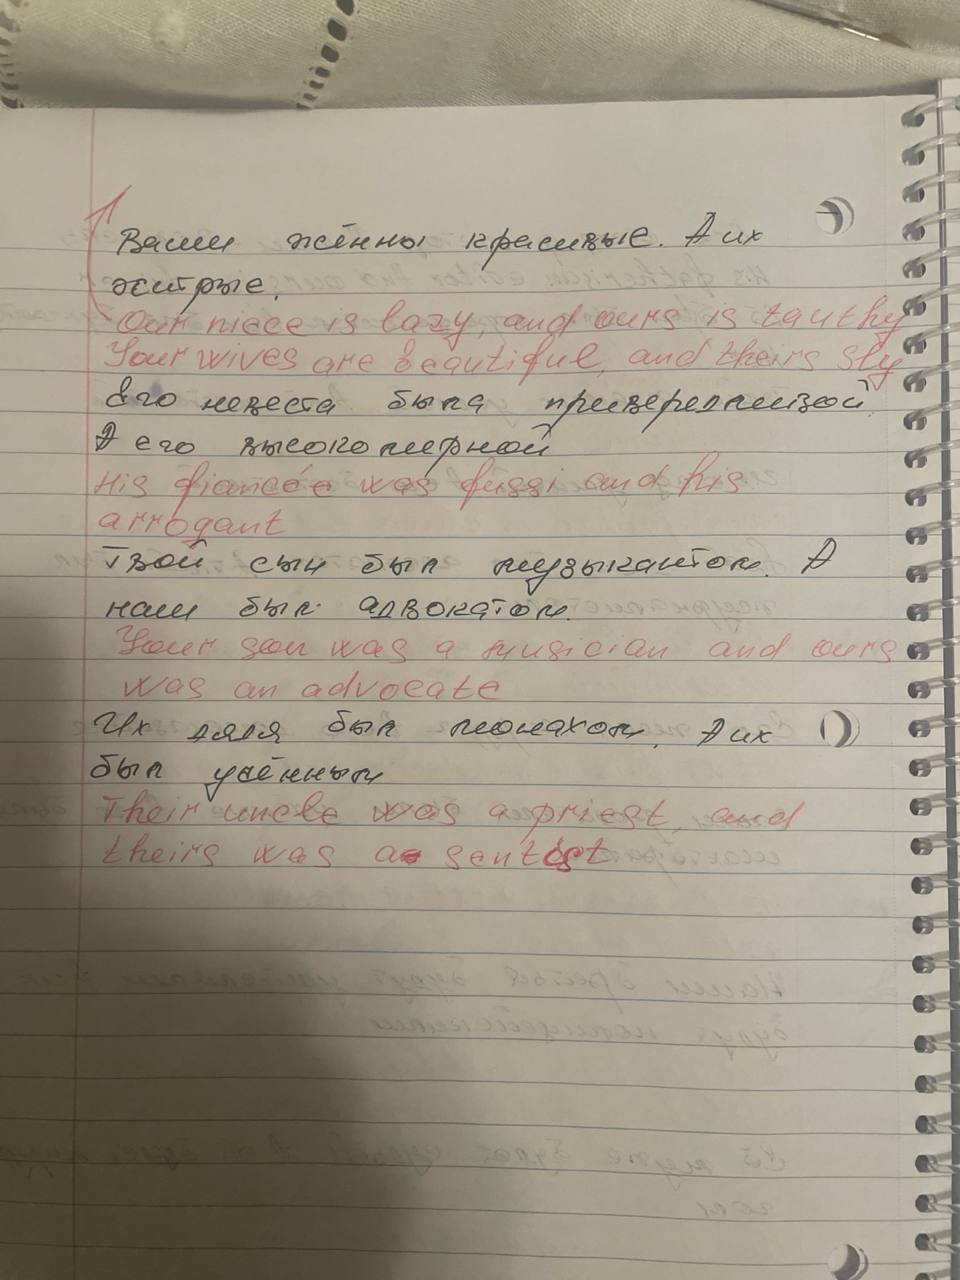 Ваши жённы красивые. А их
хитрые.
Our niece is lazy, and ours is tauthy
Your wives are beautiful, and theirs sly
Его невеста была привередливой
А его высокомерной
His fiancée was fussi and his
arrogant
Твой сын был музыкантом. А
наш был адвокатом.
Your son was a musician and ours
was an advocate
Их дядя был монахом. А их
был учённым
Their uncle was a priest, and
theirs was a sentist